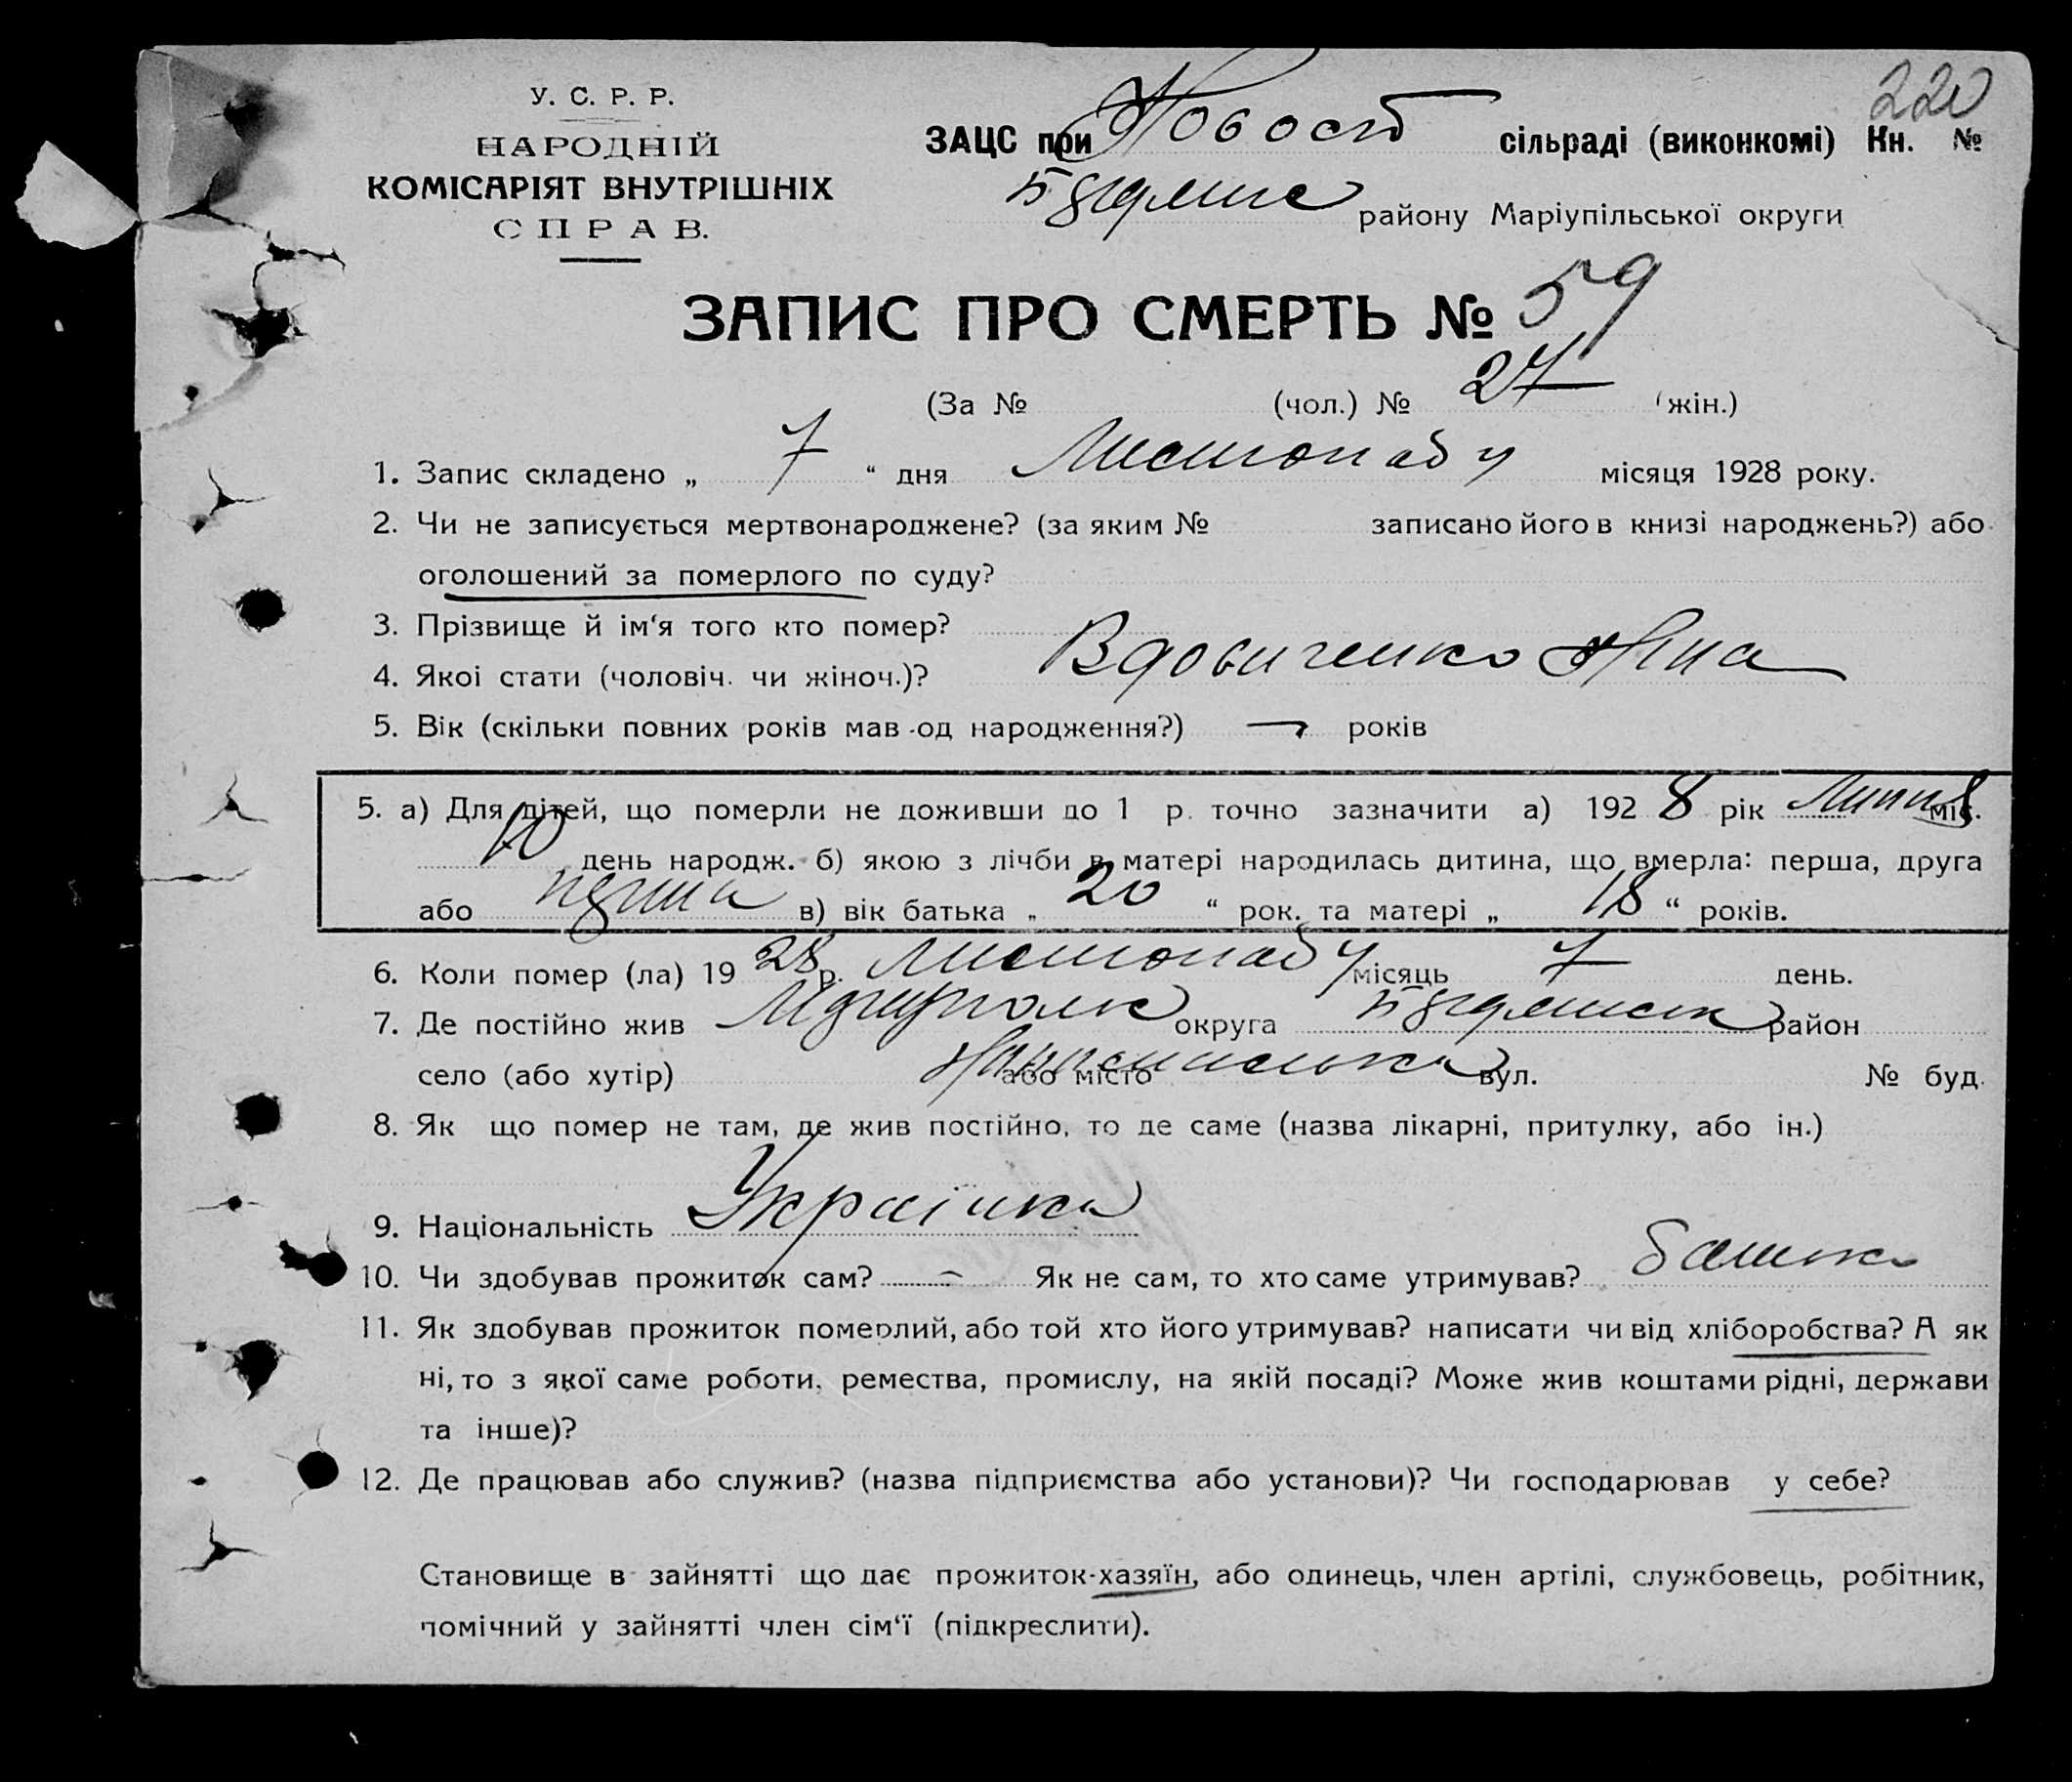 220
У. С. Р. Р.
НАРОДНІЙ
КОМІСАРІЯТ ВНУТРІШНІХ
СПРАВ.
ЗАЦС при сільраді (виконкомі) Кн. №
району Маріупільської округи
ЗАПИС ПРО СМЕРТЬ № 59
(За № (чол.) № 27 жін.)
1. Запис складено „ 7 “ дня Листопаду місяця 1928 року.
2. Чи не записується мертвонароджене? (за яким № записано його в книзі народжень?) або
оголошений за померлого по суду?
3. Прізвище й ім‘я того кто помер?
Вдовиченко Ніна
4. Якоі стати (чоловіч. чи жіноч.)?
5. Вік (скільки повних років мав од народження?) — років
5. а) Для дітей, що померли не доживши до 1 р. точно зазначити а) 1928 рік Липня міс.
10 день народж. б) якою з лічби в матері народилась дитина, що вмерла: перша, друга
або перша в) вік батька „ 20 “ рок. та матері „ 18 “ років.
6. Коли помер (ла) 1928 р. Листопаду місяць 7 день.
7. Де постійно жив округа район
село (або хутір) або місто вул. № буд.
8. Як що помер не там, де жив постійно, то де саме (назва лікарні, притулку, або ін.)
9. Національність Українка
10. Чи здобував прожиток сам? — Як не сам, то хто саме утримував? батько
11. Як здобував прожиток померлий, або той хто його утримував? написати чи від хліборобства? А як
ні, то з якої саме роботи, ремества, промислу, на якій посаді? Може жив коштами рідні, держави
та інше)?
12. Де працював або служив? (назва підприємства або установи)? Чи господарював у себе?
Становище в зайнятті що дає прожиток-хазяїн, або одинець, член артілі, службовець, робітник,
помічний у зайнятті член сім‘ї (підкреслити).